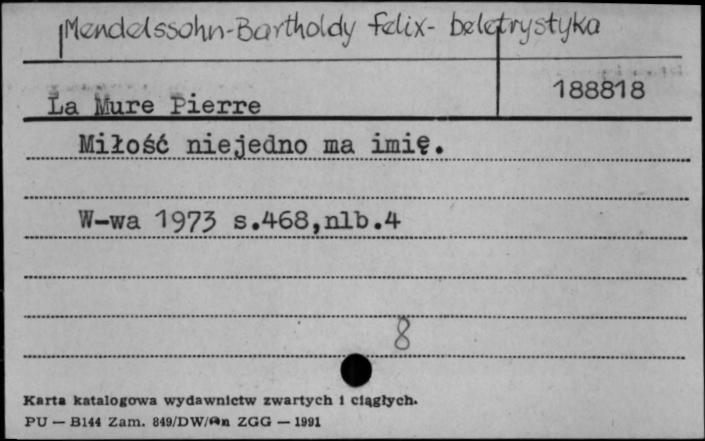 Mendelssohn-Bartholdy Felix- beletrystyka
La Mure Pierre
188818
Miłość niejedno ma imię.
W-wa 1973 s.468,nlb.4
8
Karta katalogowa wydawnictw zwartych i ciągłych.
PU — B144 Zam. 849/DW/ ZGG — 1991